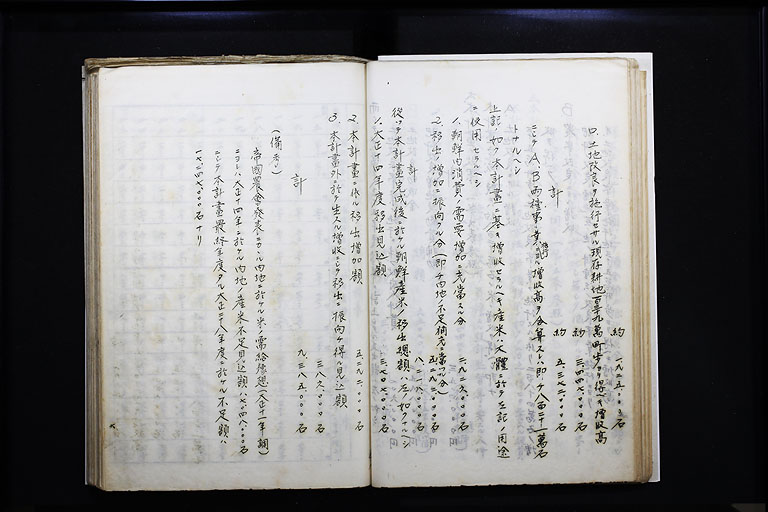 ロ、土地改良ヲ施行セサル現存耕地百三十九萬町歩ヨリ得ヘキ増收高
約 一、九二五、〇〇〇石
約 三、四四八、〇〇〇石
計 約 五、三七二、〇〇〇石
ニシテ A、B 両種事業ニ依ル増收高ヲ合算スレハ即チ八百二十一萬石
トナルヘシ
上記ノ如ク本計畫ニ基キ増收セラルヘキ産米ハ大體ニ於テ左記ノ用途
ニ使用セラルヘシ
1、朝鮮内消費ノ需要増加ニ充當スル分 二、九二六、〇〇〇石
2、移出ノ増加ニ振向クル分(即チ内地ノ不足補充ニ當ツル分) 五、二九二、〇〇〇石
計 八、二一八、〇〇〇石
從ツテ本計畫完成後ニ於ケル朝鮮産米ノ移出總額ハ左ノ如クナルヘシ
1、大正十四年度移出見込額 三、七〇七、〇〇〇石
2、本計畫ニ依ル移出増加額 五、二九二、〇〇〇石
3、本計畫外ニ於テ生スル増收ニシテ移出ニ振向ケ得ル見込額 三八六、〇〇〇石
計 九、三八五、〇〇〇石
(備考)
帝國農會ノ發表ニカヽル内地ニ於ケル米ノ需給豫想(大正十一年調)
ニヨレハ大正十四年ニ於ケル内地ノ産米不足見込額ハ七、〇四八、〇〇〇石
ニシテ本計畫最終年度タル大正二十八年度ニ於ケル不足額ハ
一七、二四七、〇〇〇石ナリ